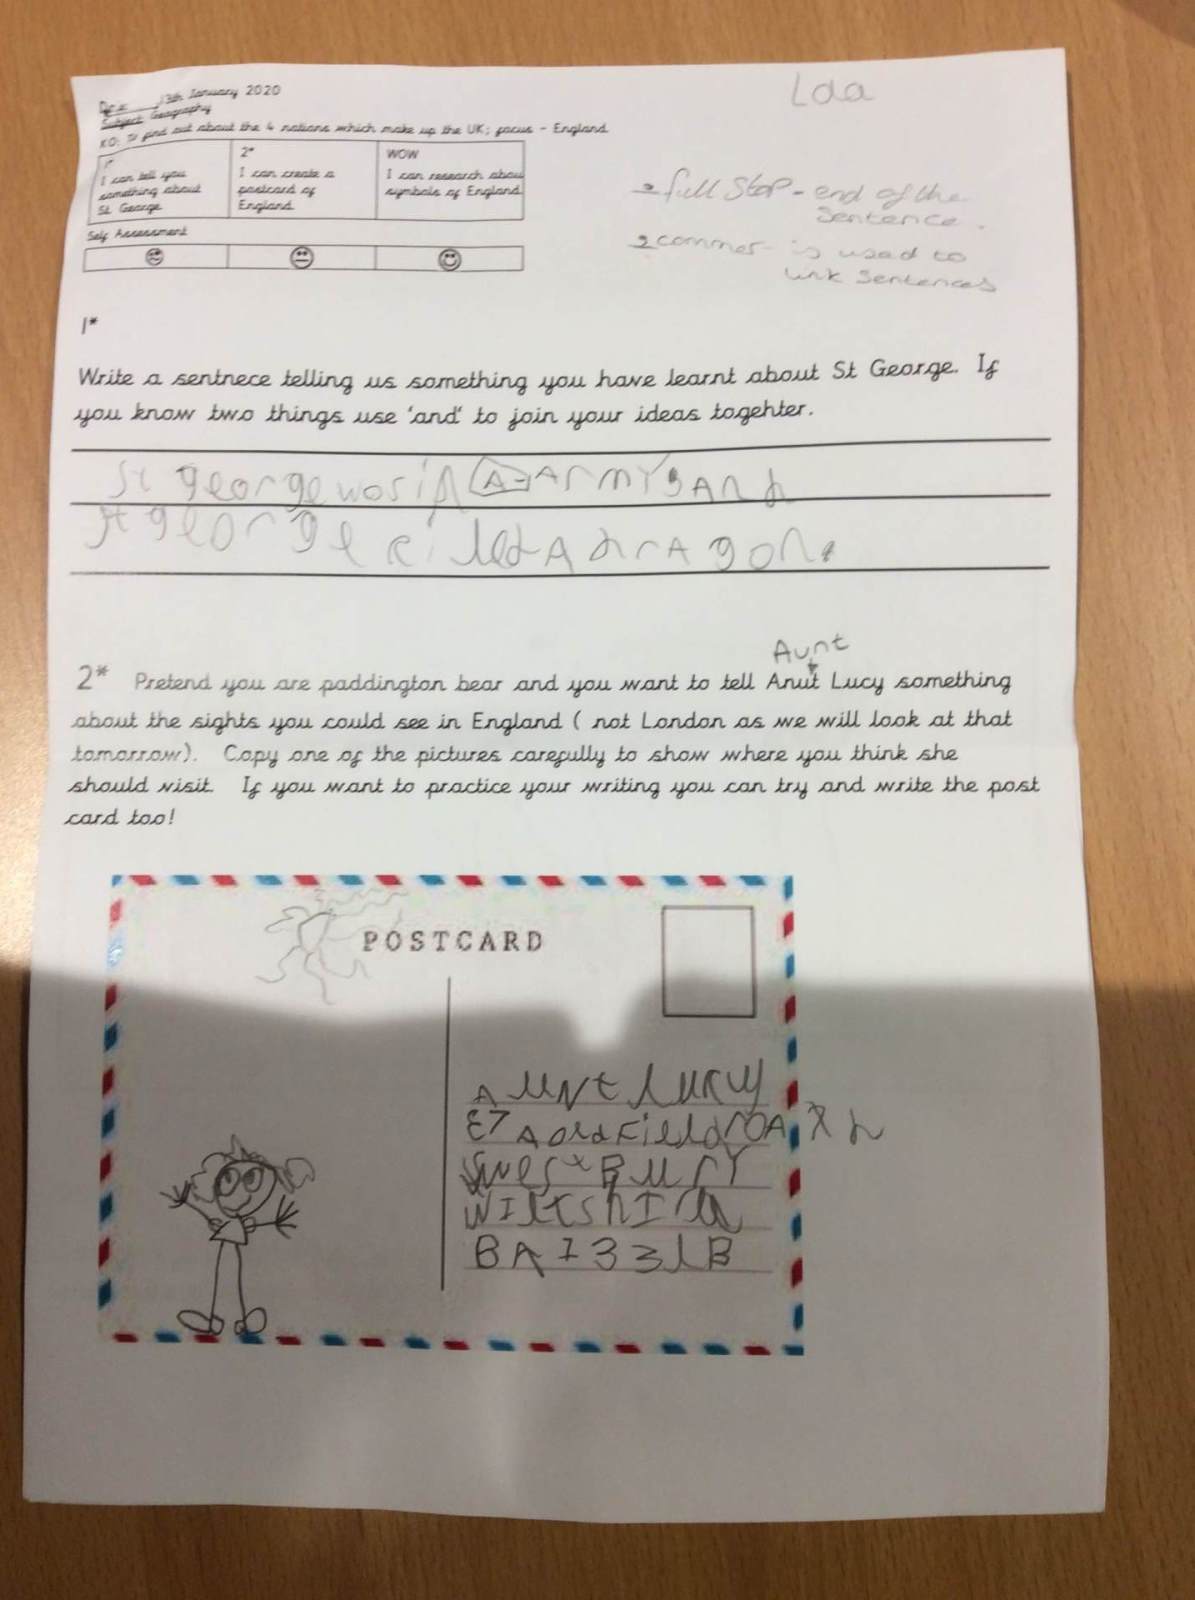 13th January 2020
Lda
Subject: Geography
KO: To find out about the 4 nations which make up the UK; focus - England
1*
I can tell you
something about
St George
2*
I can create a
postcard of
England
WOW
I can research about
symbols of England
Self Assessment
- full stop - end of the
sentence.
commer - is used to
link sentences
1*
Write a sentnece telling us something you have learnt about St George. If
you know two things use 'and' to join your ideas togehter.
St george was in A Army, And
St george killed A dragon.
Aunt
2* Pretend you are paddington bear and you want to tell Anut Lucy something
about the sights you could see in England ( not London as we will look at that
tomorrow). Copy one of the pictures carefully to show where you think she
should visit. If you want to practice your writing you can try and write the post
card too!
POSTCARD
AUNt lucy
A oldField rOA
West BurY
WIltshIre
BA133lB